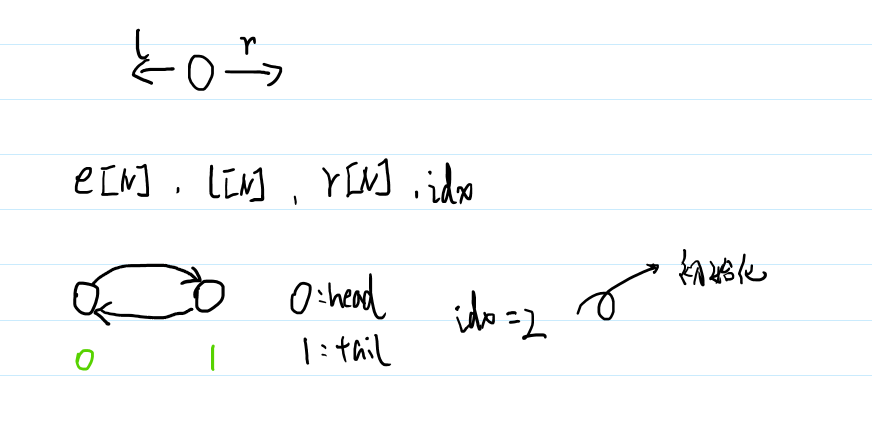 l r
e[N] . l[N] , r[N] . idx
0:head idx=2 初始化
0 1 1:tail